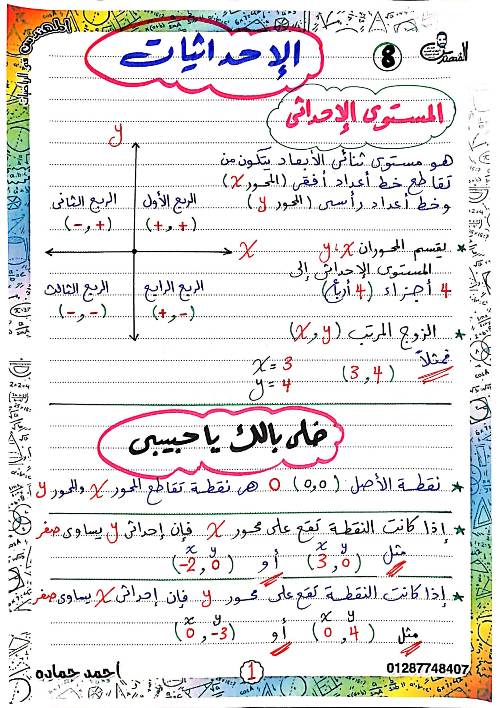 المهندس فى الرياضيات
المهندس
8
الإحداثيات
المستوى الإحداثى
هو مستوى ثنائى الأبعاد يتكون من
تقاطع خط أعداد أفقى (المحور x)
وخط أعداد رأسى (المحور y)
y
x
الربع الأول
(+ , +)
الربع الثانى
(- , +)
الربع الثالث
(- , -)
الربع الرابع
(+ , -)
★ يقسم المحوران x ، y
المستوى الإحداثى إلى
4 أجزاء (4 أرباع)
★ الزوج المرتب (x , y)
فمثلاً (3 , 4)
x = 3
y = 4
خلى بالك يا حبيبى
★ نقطة الأصل (0,0) O هى نقطة تقاطع المحور x والمحور y
★ إذا كانت النقطة تقع على محور x فإن إحداثى y يساوى صفر
x y x y
مثل (3 , 0) أو (-2 , 0)
★ إذا كانت النقطة تقع على محور y فإن إحداثى x يساوى صفر
x y x y
مثل (0 , 4) أو (0 , -3)
01287748407
1
احمد حماده